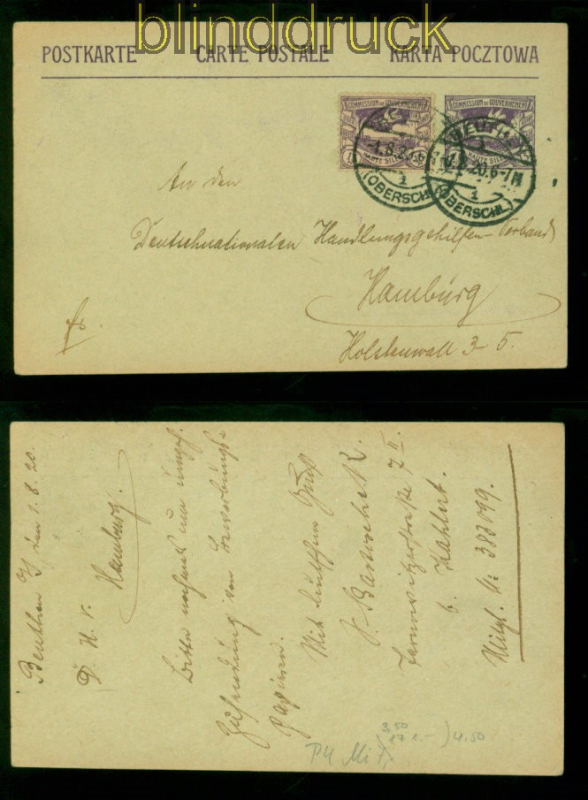 blinddruck
POSTKARTE CARTE POSTALE KARTA POCZTOWA
COMMISSION DE GOUVERNEMENT COMMISSION DE GOUVERNEMENT
HAUTE SILÉSIE HAUTE SILÉSIE
BEUTHEN
-1.8.20.6-7N
(OBERSCHL)
An den
Deutschnationalen Handlungsgehilfen-Verband
Hamburg
Holstenwall 3-5.
fr.
Beuthen O/S den 1.8.20.
D. H. V. Hamburg.
Bitte nochmals um umgeh.
Zusendung von Bewerbungs-
papieren.
Mit deutschem Gruß
Tarnowitzerstraße 7 II.
b. Kahlert.
Mitgl. N. 383099.
P4 Mi 7,
3,50
4.50